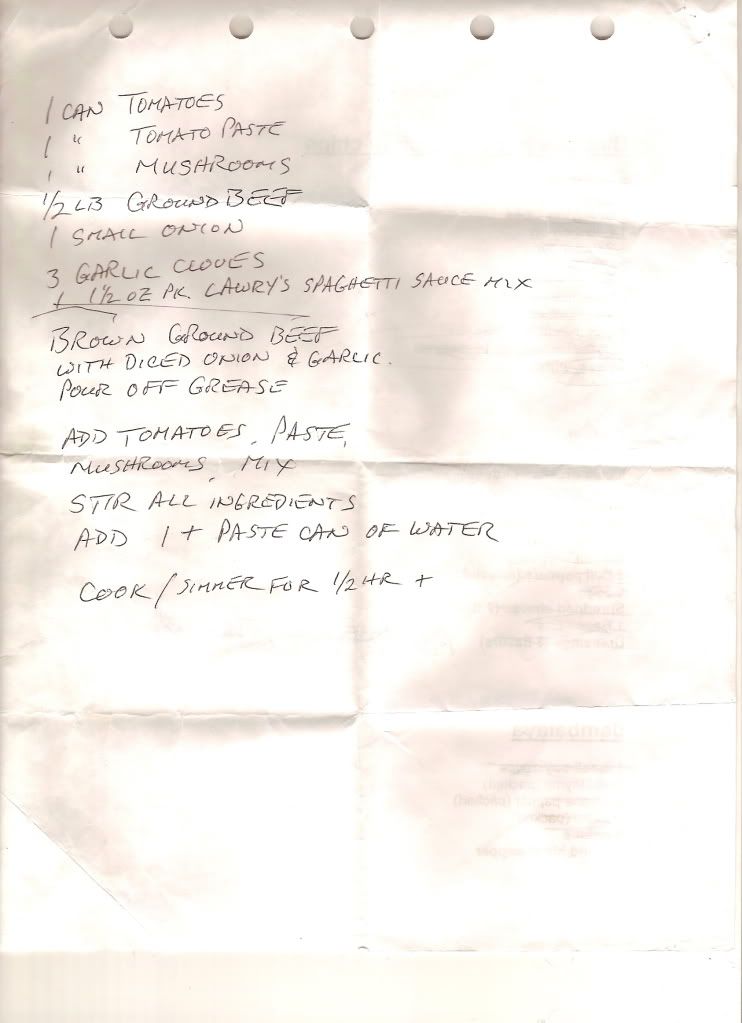 1 CAN TOMATOES
1 " TOMATO PASTE
1 " MUSHROOMS
1/2 LB GROUND BEEF
1 SMALL ONION
3 GARLIC CLOVES
1 1 1/2 OZ PK. LAWRY'S SPAGHETTI SAUCE MIX
BROWN GROUND BEEF
WITH DICED ONION & GARLIC.
POUR OFF GREASE
ADD TOMATOES, PASTE,
MUSHROOMS, MIX
STIR ALL INGREDIENTS
ADD 1 + PASTE CAN OF WATER
COOK / SIMMER FOR 1/2 HR +